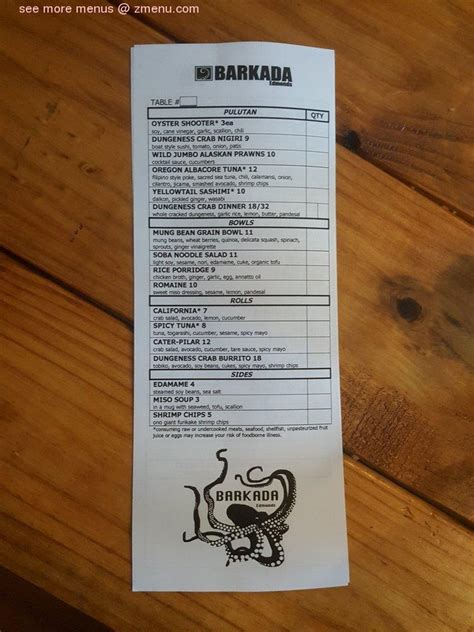 see more menus @ zmenu.com
BARKADA
Edmonds
TABLE #
PULUTAN QTY
OYSTER SHOOTER* 3ea
soy, cane vinegar, garlic, scallion, chili
DUNGENESS CRAB NIGIRI 9
boat style sushi, tomato, onion, patis
WILD JUMBO ALASKAN PRAWNS 10
cocktail sauce, cucumbers
OREGON ALBACORE TUNA* 12
filipino style poke, sacred sea tuna, chili, calamansi, onion,
cilantro, jicama, smashed avocado, shrimp chips
YELLOWTAIL SASHIMI* 10
daikon, pickled ginger, wasabi
DUNGENESS CRAB DINNER 18/32
whole cracked dungeness, garlic rice, lemon, butter, pandesal
BOWLS
MUNG BEAN GRAIN BOWL 11
mung beans, wheat berries, quinoa, delicata squash, spinach,
sprouts, ginger vinaigrette
SOBA NOODLE SALAD 11
light soy, sesame, nori, edamame, cuke, organic tofu
RICE PORRIDGE 9
chicken broth, ginger, garlic, egg, annatto oil
ROMAINE 10
sweet miso dressing, sesame, lemon, pandesal
ROLLS
CALIFORNIA* 7
crab salad, avocado, lemon, cucumber
SPICY TUNA* 8
tuna, togarashi, cucumber, sesame, spicy mayo
CATER-PILAR 12
crab salad, avocado, cucumber, tare sauce, spicy mayo
DUNGENESS CRAB BURRITO 18
tobiko, avocado, soy beans, cukes, spicy mayo, shrimp chips
SIDES
EDAMAME 4
steamed soy beans, sea salt
MISO SOUP 3
in a mug with seaweed, tofu, scallion
SHRIMP CHIPS 5
ono giant furikake shrimp chips
*consuming raw or undercooked meats, seafood, shellfish, unpasteurized fruit
juice or eggs may increase your risk of foodborne illness.
BARKADA
Edmonds